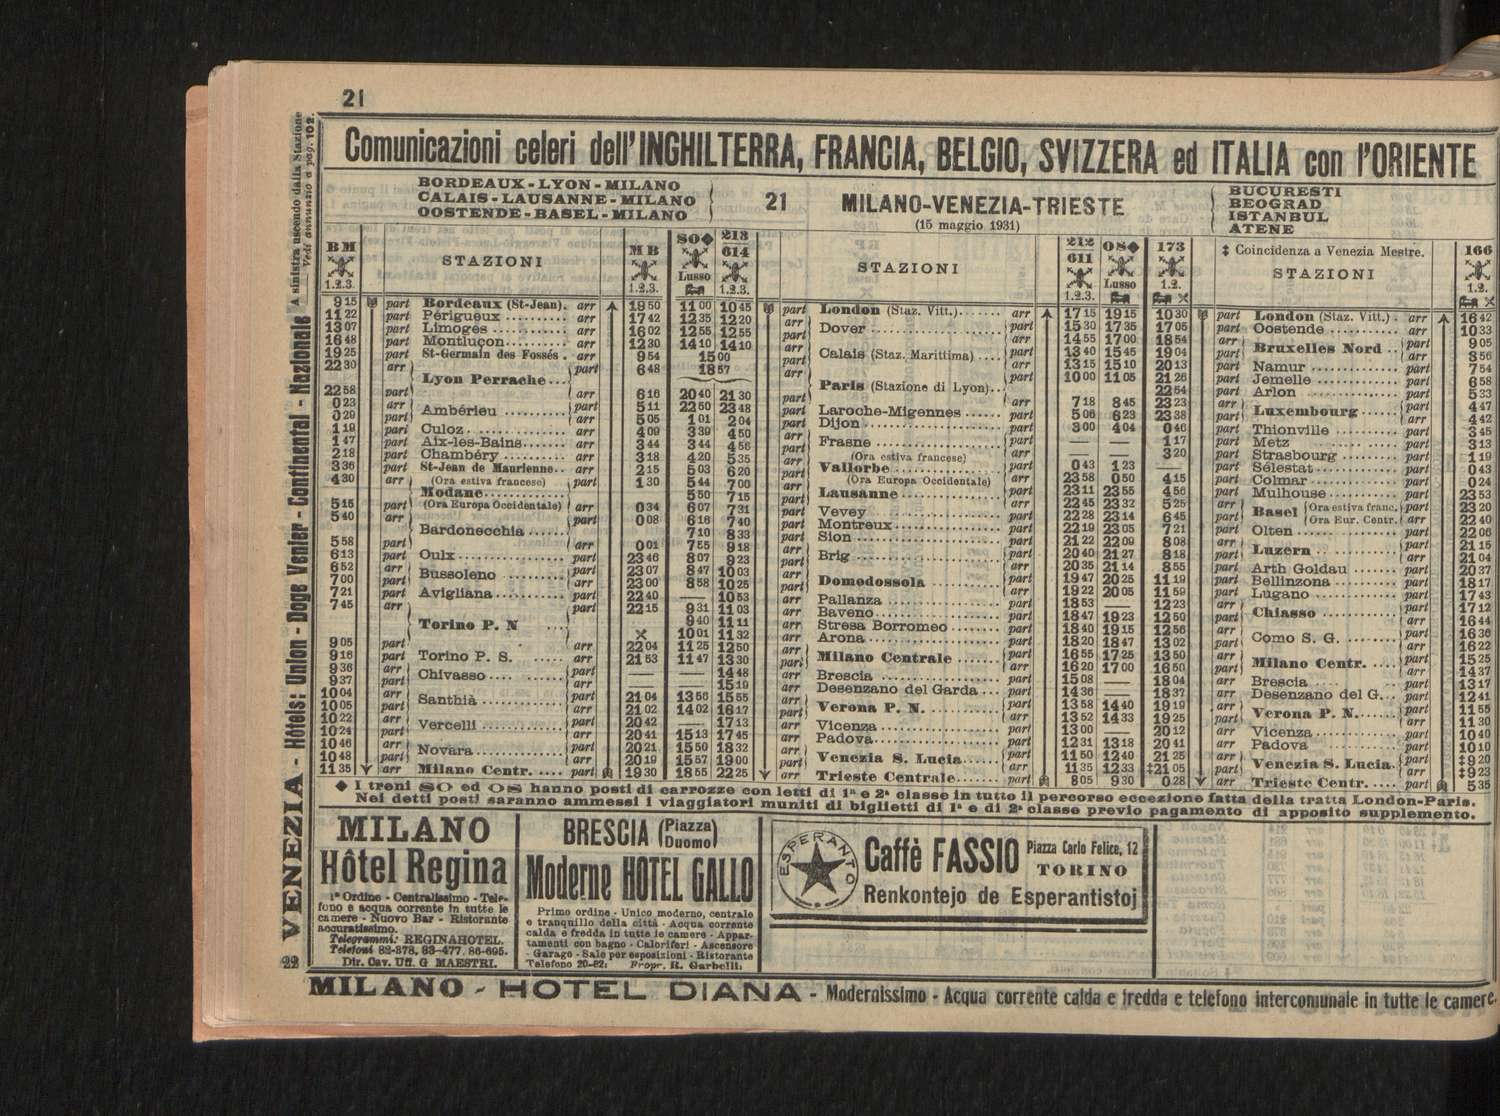 21
Comunicazioni celeri dell'INGHILTERRA, FRANCIA, BELGIO, SVIZZERA ed ITALIA con l'ORIENTE
BORDEAUX-LYON-MILANO
CALAIS-LAUSANNE-MILANO
OOSTENDE-BASEL-MILANO
21 MILANO-VENEZIA-TRIESTE
(15 maggio 1931)
BUCURESTI
BEOGRAD
ISTANBUL
ATENE
BM
1.2.3.
STAZIONI
MB
1.2.3.
SO◆
Lusso
213
614
1.2.3.
9 15 part Bordeaux (St-Jean). arr 19 50 11 00 10 45
11 22 part Périgueux arr 17 42 12 35 12 20
13 07 part Limoges arr 16 02 12 55 12 55
16 48 part Montluçon arr 12 30 14 10 14 10
19 25 part St-Germain des Fossés . arr 9 54 15 00
22 30 arr Lyon Perrache part 6 48 18 57
22 58 part arr 6 16 20 40 21 30
0 23 arr Ambérieu part 5 11 22 50 23 48
0 29 part arr 5 05 1 01 2 04
1 19 part Culoz arr 4 09 3 39 4 50
1 47 part Aix-les-Bains arr 3 44 3 44 4 56
2 18 part Chambéry arr 3 18 4 20 5 35
3 36 part St-Jean de Maurienne arr 2 15 5 03 6 20
4 30 arr (Ora estiva francese) part 1 30 5 44 7 00
Modane 5 50 7 15
5 15 part (Ora Europa Occidentale) arr 0 34 6 07 7 31
5 40 arr Bardonecchia part 0 08 6 16 7 40
7 10 8 33
5 58 part arr 0 01 7 55 9 18
6 13 part Oulx arr 23 46 8 07 9 23
6 52 arr Bussoleno part 23 07 8 47 10 03
7 00 part arr 23 00 8 58 10 25
7 21 part Avigliana arr 22 40 — 10 53
7 45 arr Torino P. N part 22 15 9 31 11 03
9 40 11 11
10 01 11 32
9 05 part arr 22 04 11 25 12 50
9 16 part Torino P. S. arr 21 53 11 47 13 30
9 36 arr Chivasso part — — 14 48
9 37 part arr — — 15 19
10 04 arr Santhià part 21 04 13 56 15 55
10 05 part arr 21 02 14 02 16 17
10 22 arr Vercelli part 20 42 — 17 13
10 24 part arr 20 41 15 13 17 45
10 46 arr Novara part 20 21 15 50 18 32
10 48 part arr 20 19 15 57 19 00
11 35 arr Milano Centr. part 19 30 18 55 22 25
STAZIONI
212
611
1.2.3.
OS◆
Lusso
173
1.2.
part London (Staz. Vitt.) arr 17 15 19 15 10 30
arr Dover part 15 30 17 35 17 05
part arr 14 55 17 00 18 54
arr Calais (Staz. Marittima) part 13 40 15 45 19 04
part arr 13 15 15 10 20 13
arr Paris (Stazione di Lyon) part 10 00 11 05 21 26
22 54
part arr 7 18 8 45 23 23
part Laroche-Migennes arr 5 06 6 23 23 38
part Dijon arr 3 00 4 04 0 46
arr Frasne part — — 1 17
part (Ora estiva francese) arr — — 3 20
arr Vallorbe part 0 43 1 23 —
part (Ora Europa Occidentale) arr 23 58 0 50 4 15
arr Lausanne part 23 11 23 55 4 56
part arr 22 45 23 32 5 25
arr Vevey part 22 28 23 14 6 45
arr Montreux part 22 19 23 05 7 21
arr Sion part 21 22 22 09 8 08
arr Brig part 20 40 21 27 8 18
part arr 20 35 21 14 8 55
arr Domodossola part 19 47 20 25 11 19
part arr 19 22 20 05 11 59
arr Pallanza part 18 53 — 12 23
arr Baveno part 18 47 19 23 12 50
arr Stresa Borromeo part 18 40 19 15 12 56
arr Arona part 18 20 18 47 13 02
arr Milano Centrale part 16 55 17 25 13 50
part arr 16 20 17 00 16 50
arr Brescia part 15 08 — 18 04
arr Desenzano del Garda part 14 36 — 18 37
arr Verona P. N. part 13 58 14 40 19 19
part arr 13 52 14 33 19 25
arr Vicenza part 13 00 — 20 12
arr Padova part 12 31 13 18 20 41
arr Venezia S. Lucia part 11 50 12 40 21 25
part arr 11 35 12 33 ‡21 05
arr Trieste Centrale part 8 05 9 30 0 28
‡ Coincidenza a Venezia Mestre.
STAZIONI
166
1.2.
part London (Staz. Vitt.) . arr 16 42
part Oostende arr 10 33
arr Bruxelles Nord part 9 05
part arr 8 56
part Namur arr 7 54
part Jemelle arr 6 58
part Arlon arr 5 33
arr Luxembourg part 4 47
part arr 4 42
part Thionville arr 3 45
part Metz arr 3 13
part Strasbourg arr 1 19
part Sélestat arr 0 43
part Colmar arr 0 24
part Mulhouse arr 23 53
arr Basel (Ora estiva franc.) part 23 20
part (Ora Eur. Centr.) arr 22 40
part Olten arr 22 06
arr Luzern part 21 15
part arr 21 04
part Arth Goldau part 20 37
part Bellinzona part 18 17
part Lugano part 17 43
arr Chiasso part 17 12
part arr 16 44
arr Como S. G. part 16 36
part arr 16 22
arr Milano Centr. part 15 25
part arr 14 37
arr Brescia part 13 17
arr Desenzano del G. part 12 41
arr Verona P. N. part 11 55
part arr 11 30
arr Vicenza part 10 40
arr Padova part 10 10
arr Venezia S. Lucia part ‡9 20
part arr ‡9 23
arr Trieste Centr. part 5 35
◆ I treni SO ed OS hanno posti di carrozze con letti di 1ª e 2ª classe in tutto il percorso eccezione fatta della tratta London-Paris.
Nei detti posti saranno ammessi i viaggiatori muniti di biglietti di 1ª e di 2ª classe previo pagamento di apposito supplemento.
MILANO
Hôtel Regina
1º Ordine - Centralissimo - Telefono
e acqua corrente in tutte le
camere - Nuovo Bar - Ristorante
accuratissimo.
Telegrammi: REGINAHOTEL.
Telefoni 82-378, 83-477, 86-695.
Dir. Cav. Uff. G MAESTRI.
BRESCIA (Piazza Duomo)
Moderne HOTEL GALLO
Primo ordine - Unico moderno, centrale
e tranquillo della città - Acqua corrente
calda e fredda in tutte le camere - Appartamenti
con bagno - Caloriferi - Ascensore
- Garage - Sale per esposizioni - Ristorante
Telefono 20-82: Propr. R. Garbelli:
ESPERANTO
Caffè FASSIO Piazza Carlo Felice, 12
TORINO
Renkontejo de Esperantistoj
MILANO - HOTEL DIANA - Modernissimo - Acqua corrente calda e fredda e telefono intercomunale in tutte le camere.
VENEZIA - Hôtels: Union - Doge Venier - Continental - Nazionale
A sinistra uscendo dalla Stazione
Vedi annunzio a pag. 102.
22